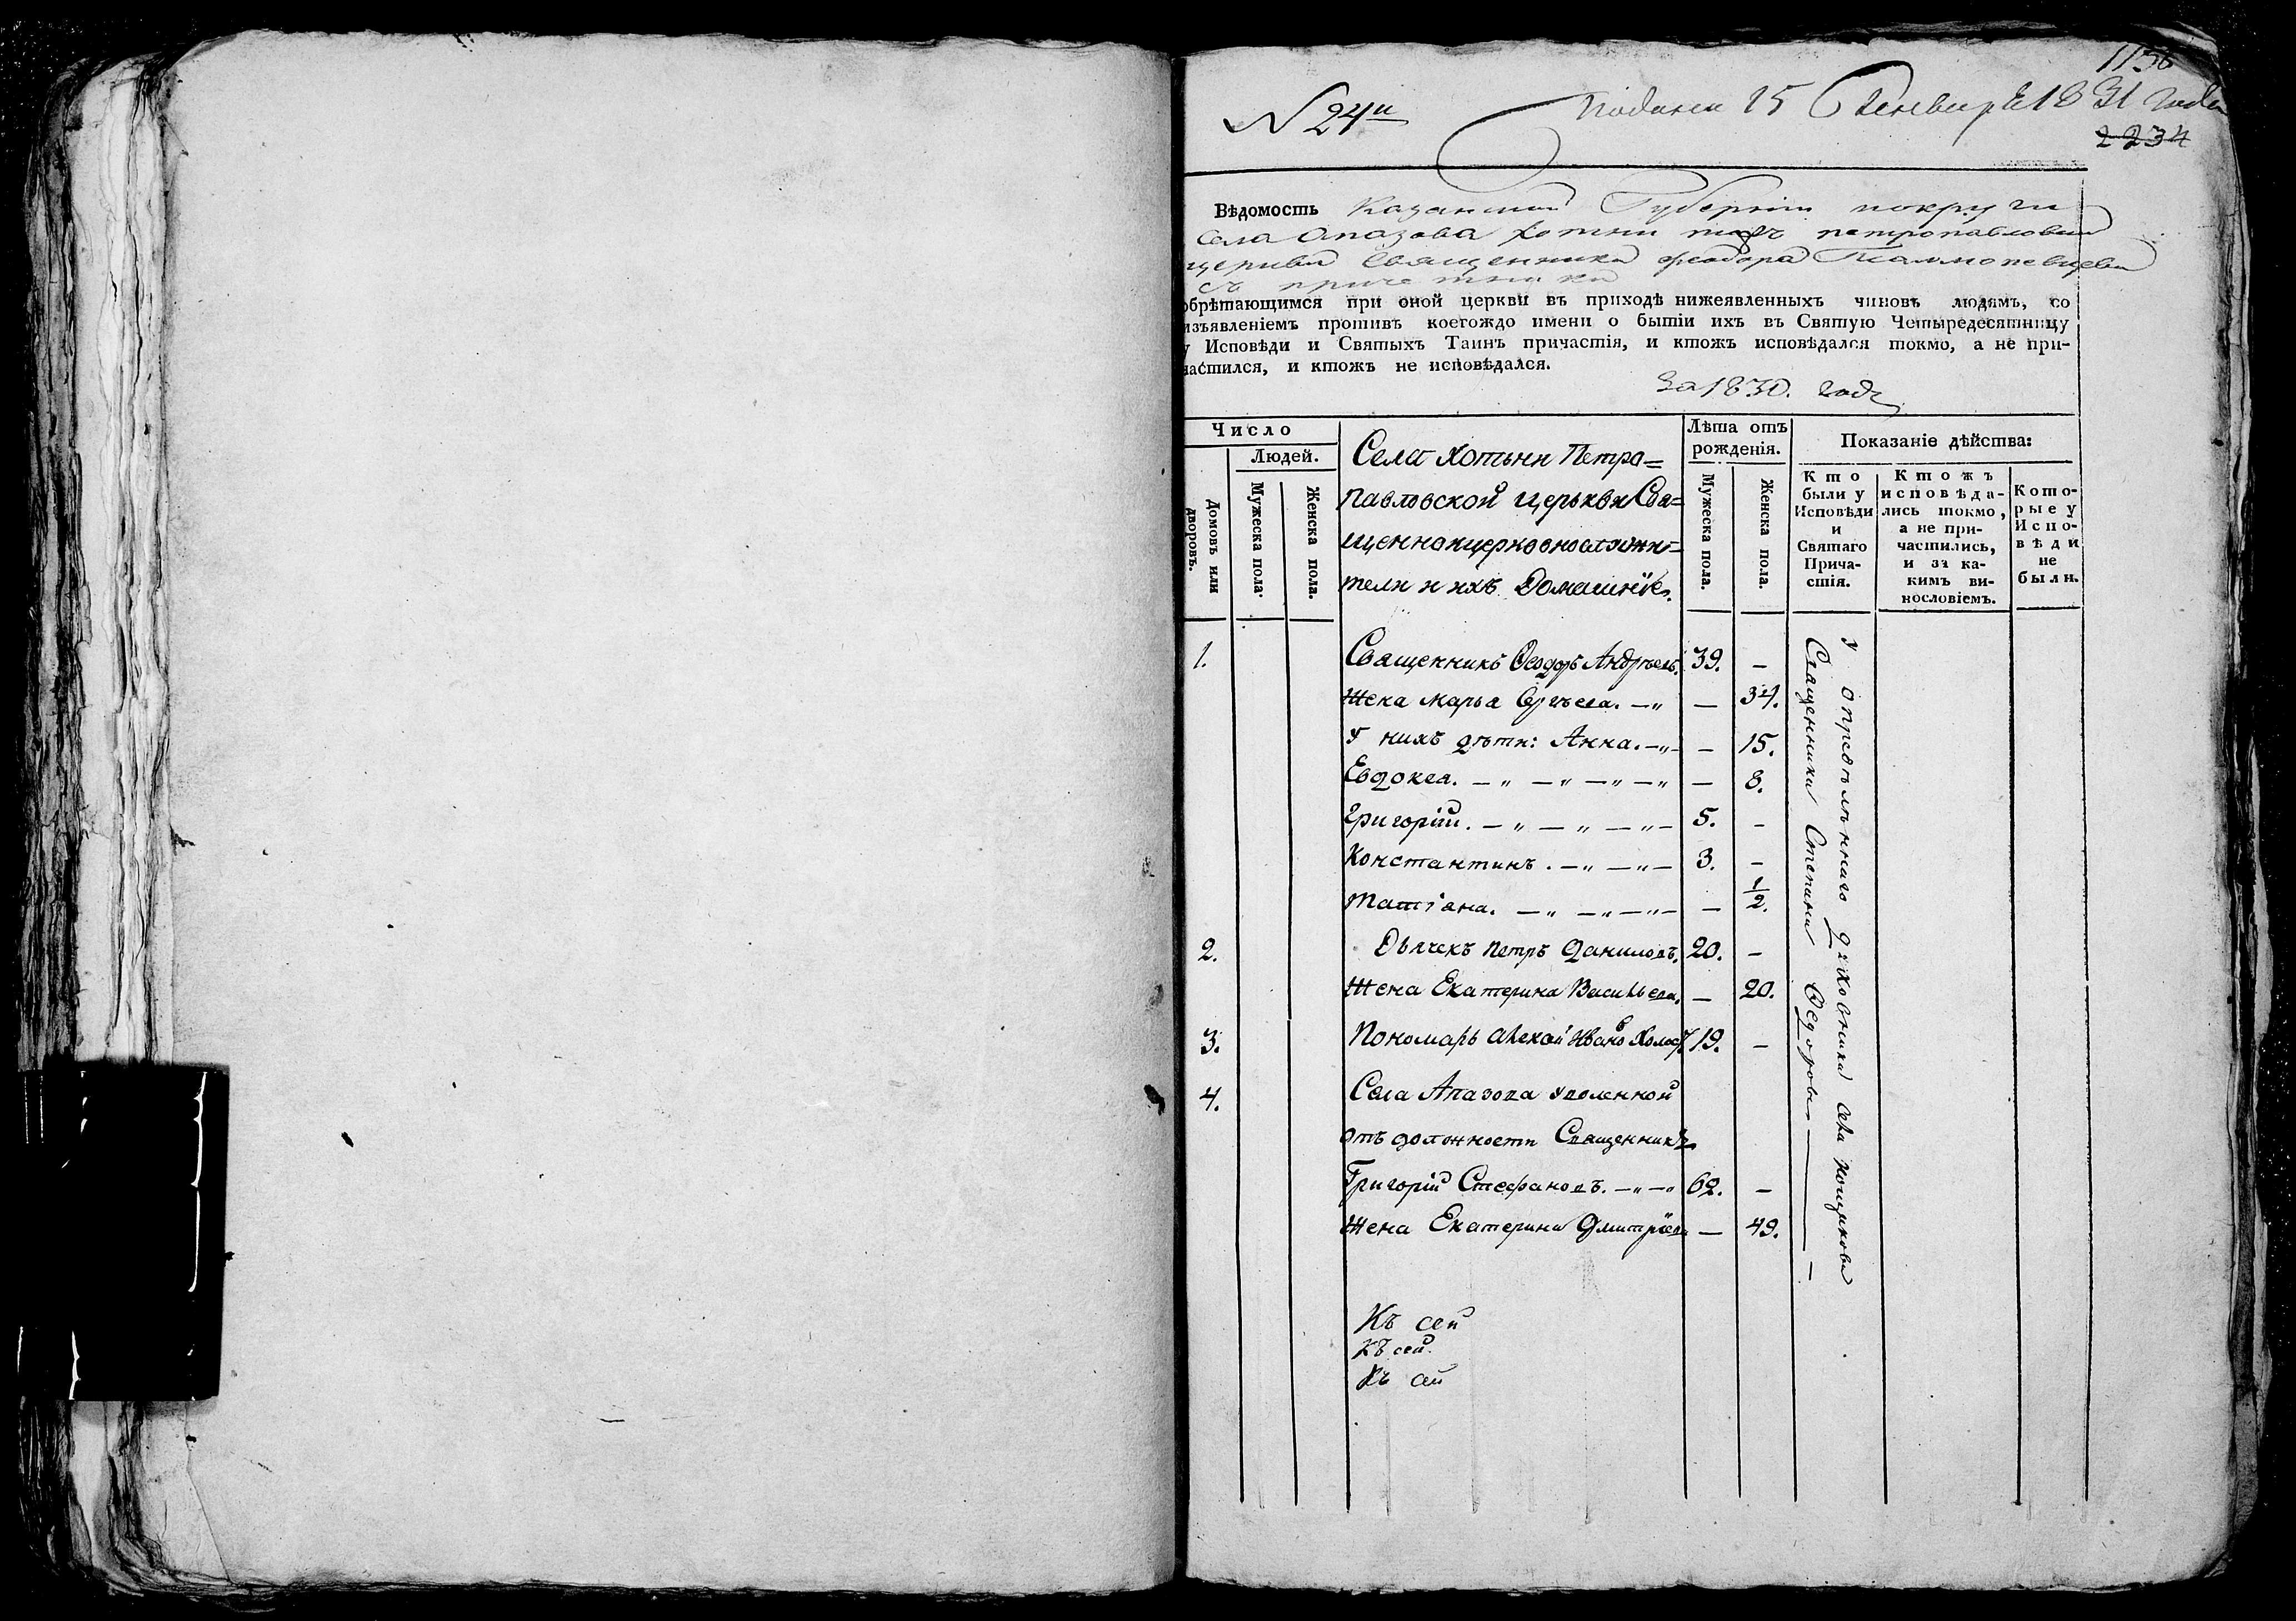 1156
N 24й
Подана 15 Генваря 1831 года
2234
Вѣдомость Казанской Губернiи
села Апазова Хотни тожъ петропавловской
церкви Священника феодора
съ причетники
обрѣтающимся при оной церкви въ приходѣ нижеявленныхъ чиновъ людямъ, со
изъявленiемъ противъ коегождо имени о бытiи ихъ въ Святую Четыредесятницу
у Исповѣди и Святыхъ Таинъ причастiя, и ктожъ исповѣдался токмо, а не при-
частился, и ктожъ не исповѣдался.
За 1830. годъ
Число
Людей.
Домовъ или
дворовъ.
Мужеска пола.
Женска пола.
Села Хотьни Петро=
павловской церькви Свя=
щенноицерковнослужи=
тели и ихъ Домашнiе.
Лѣта отъ
рожденiя.
Мужеска пола.
Женска пола.
Показанiе дѣйства:
Кто
были у
Исповѣди
и
Святаго
Прича-
стiя.
Ктожъ
исповѣда-
лись токмо,
а не при-
частились,
и за ка-
кимъ ви-
нословiемъ.
Кото-
рые у
Испо-
вѣди
не
были.
1. Священникъ Ѳеодоръ Андрѣевъ. 39. —
Жена Марья Сергѣева. —„ — 34.
У нихъ дѣти: Анна. —„— — 15.
Евдокея. —„ —„ —„ —„ — 8.
Григорiй. —„ —„ —„— 5. —
Константинъ. —„ —„— 3. —
Татiана. —„ —„—„— — 1/2.
2. Дьячекъ Петръ Даниловъ. 20. —
Жена Екатерина Васильева. — 20.
3. Пономарь Алексѣй Ивановъ Холостъ 19. —
4. Села Апазова уволенной
отъ должности Священникъ
Григорiй Стефановъ. —„—„ 62. —
Жена Екатерина Дмитрiева — 49.
у опредѣлѣннаго духовника села
Священника Стефана Ѳедорова
Къ сей
Къ сей.
Къ сей